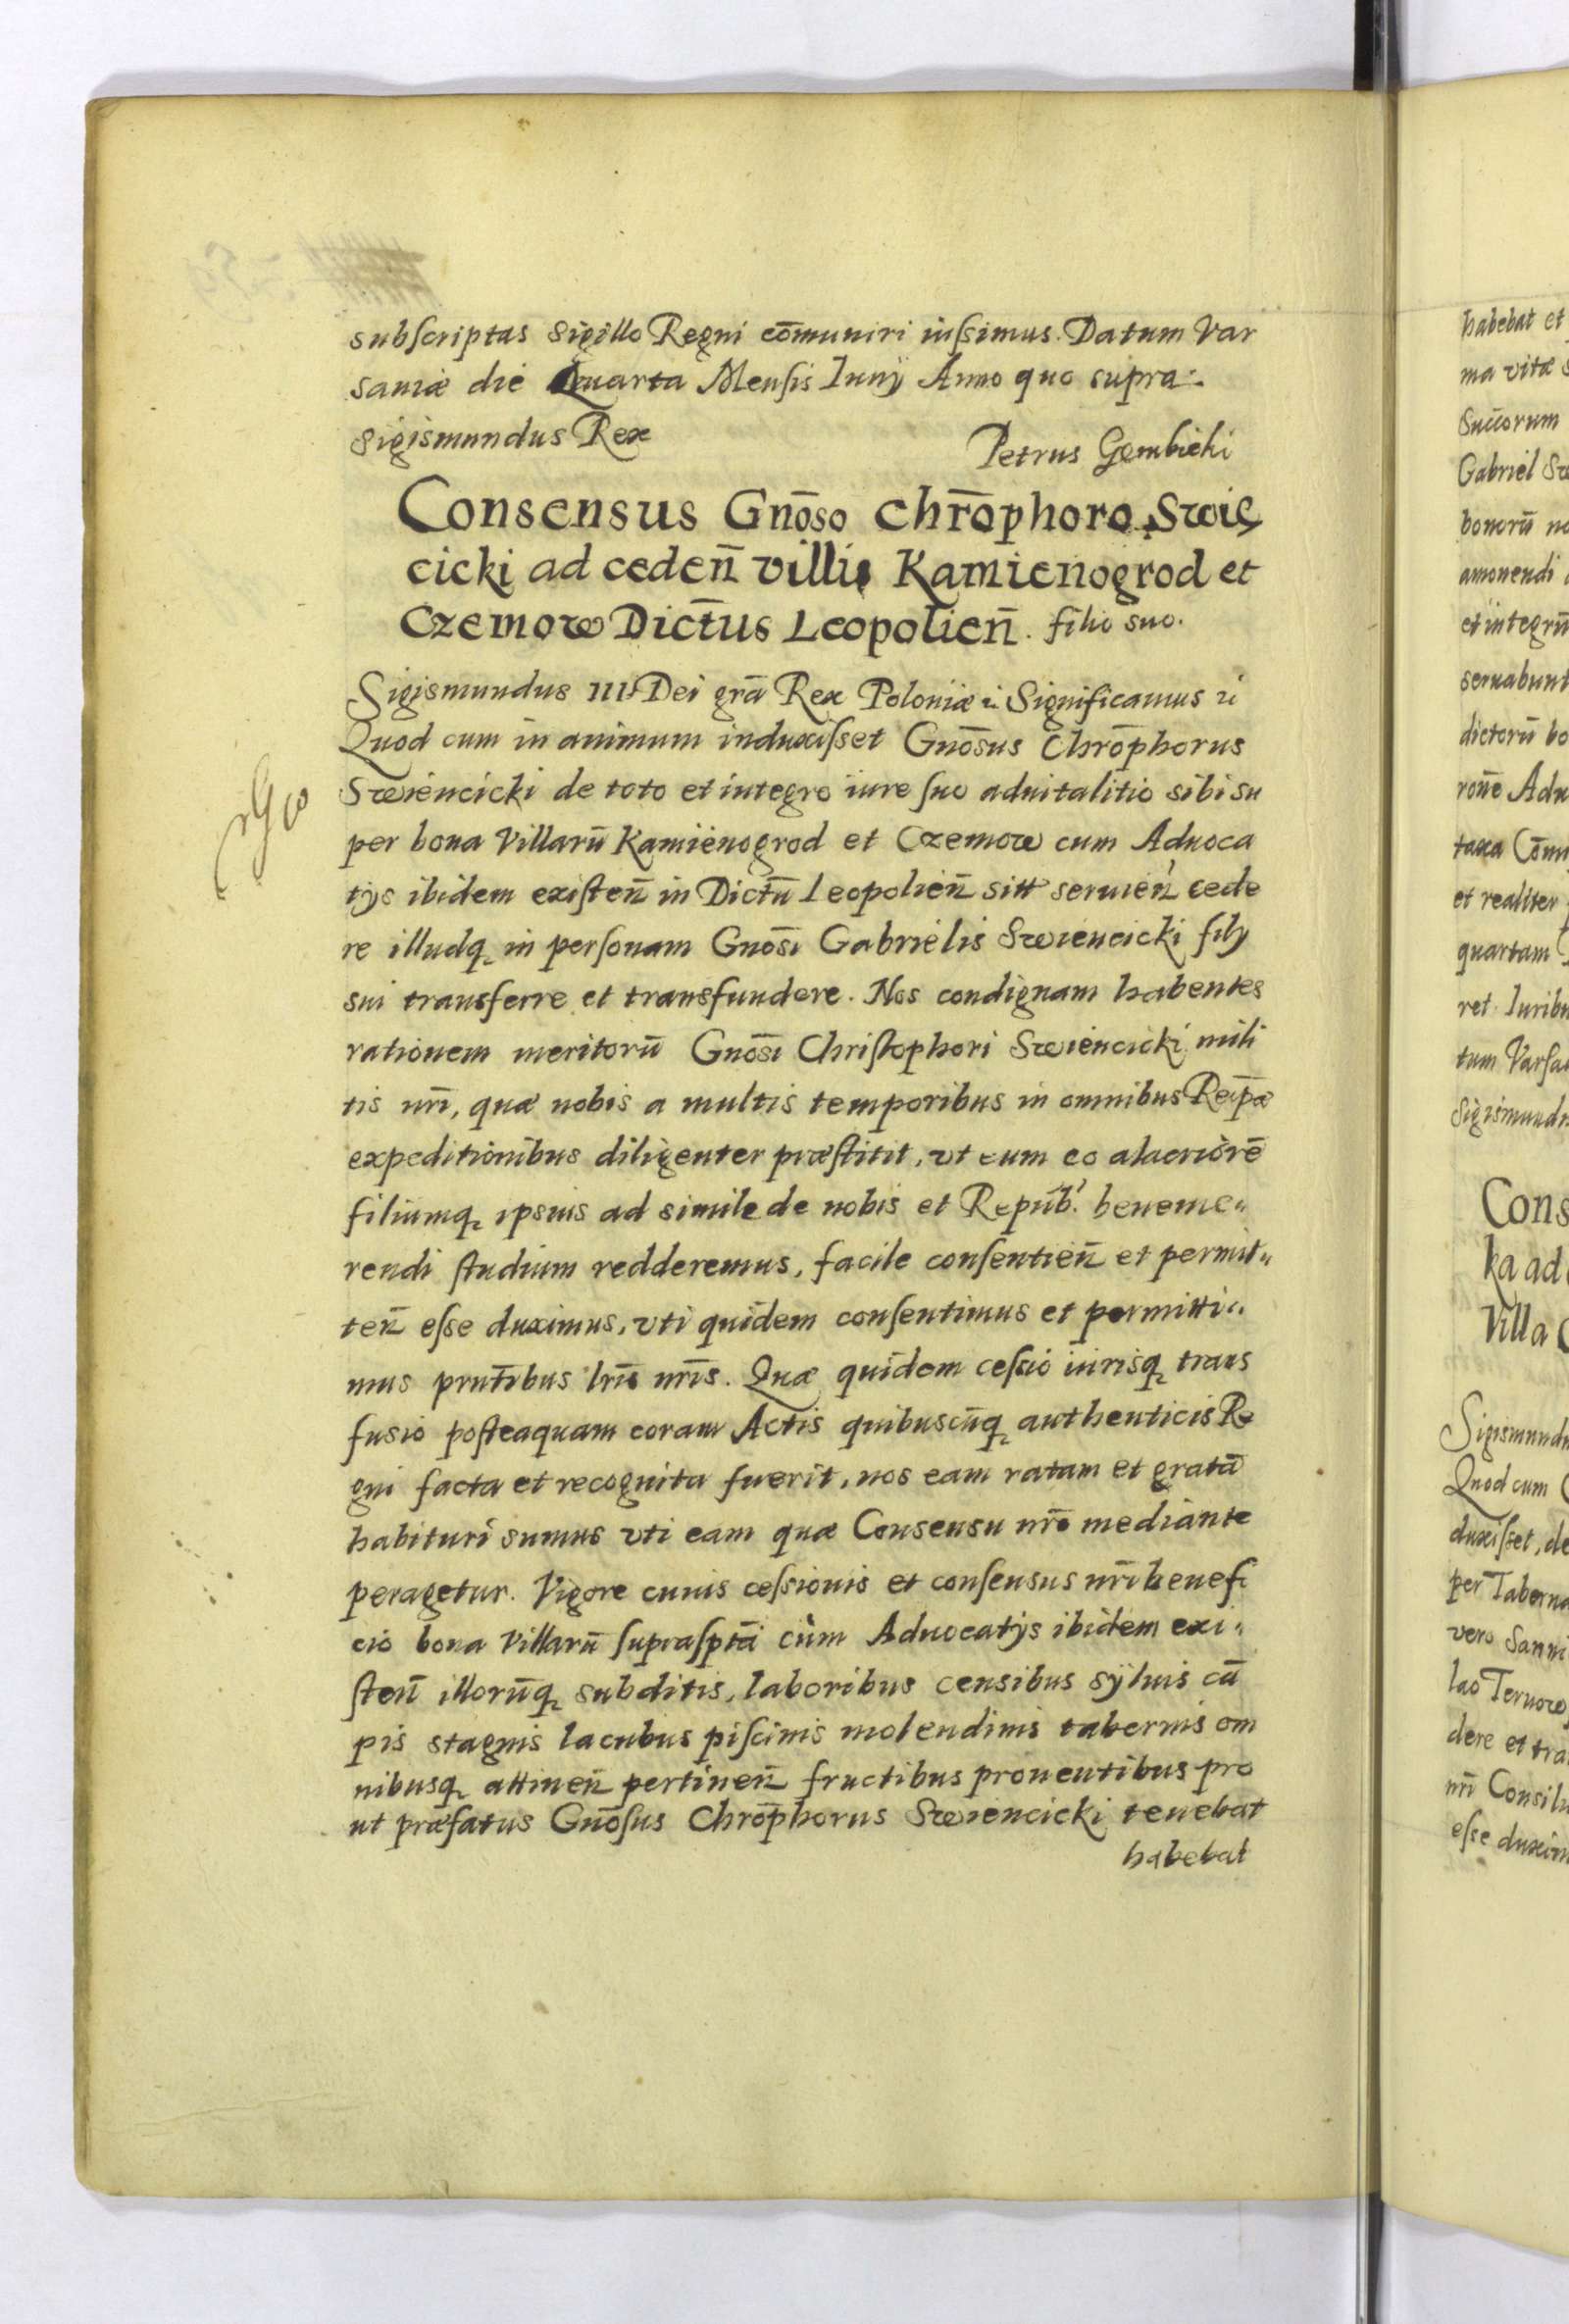 subscriptas sigillo Regni cōmuniri iussimus. Datum Var
sauiæ die Quarta Mensis Iunij Anno quo supra.
Sigismundus Rex
Petrus Gembicki
Consensus Gnōso Chrōphoro Swię
cicki ad cedeñ villis Kamienogrod et
Czemow Dictūs Leopolieñ. filio suo.
Sigismundus III Dei grā Rex Poloniæ Significamus
Quod cum in animum induxisset Gnōsus Chrōphorus
Swiencicki de toto et integro iure suo aduitalitio sibi su
per bona Villarū Kamienogrod et Czemow cum Aduoca
tijs ibidem existeñ in Dictū Leopolieñ sitt seruieñ cede
re illudq̨ in personam Gnōsi Gabrielis Swiencicki filij
sui transferre et transfundere. Nos condignam habentes
rationem meritorū Gnōsi Christophori Swiencicki mili
tis nrī, quæ nobis a multis temporibus in omnibus Reip̄æ
expeditionibus diligenter præstitit, vt eum eo alacriorē
filiumq̨ ipsius ad simile de nobis et Repub. beneme„
rendi studium redderemus, facile consentieñ et permit„
teñ esse duximus, vti quidem consentimus et permitti„
mus prntībus lrīs nrīs. Quæ quidem cessio iurisq̨ trans
fusio posteaquam coram Actis quibuscūq̨ authenticis Re
gni facta et recognita fuerit, nos eam ratam et gratā
habituri sumus vti eam quæ Consensu nrō mediante
peragetur. Vigore cuius cessionis et consensus nrī benefi
cio bona Villarū suprasptā cum Aduocatijs ibidem exi„
steñ illorūq̨ subditis, laboribus censibus syluis cā
pis stagnis lacubus piscinis molendinis tabernis om
nibusq̨ attineñ pertineñ fructibus prouentibus pro
ut præfatus Gnōsus Chrōphorus Swiencicki tenebat
habebat
habebat et
ma vitæ
Succorum
Gabriel Sw
bonorū no
amouendi
et integrū
seruabunt
dictorū bo
ronē Adu
taxa Cōm
et realiter
quartam
ret. Iuribu
tum Varsa
Sigismundu
Cons
ka ad
Villa
Sigismundu
Quod cum
duxisset, de
per Taberna
vero Sanni
lao Ternow
dere et tra
nrī Consili
esse duxim